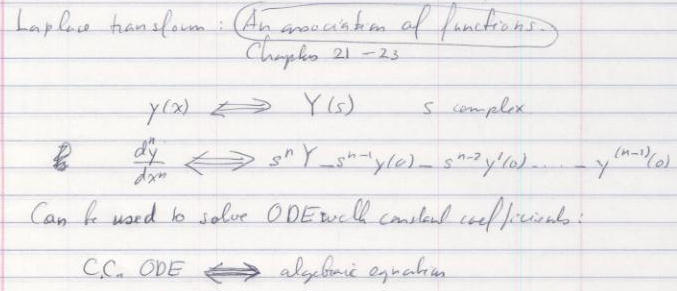 Laplace transform : An association of functions.
Chapters 21 - 23
y(x) ⟺ Y(s) s complex
dⁿy/dxⁿ ⟺ sⁿ Y - sⁿ⁻¹ y(0) - sⁿ⁻² y'(0) .... - y⁽ⁿ⁻¹⁾(0)
Can be used to solve ODE with constant coefficients :
C.C. ODE ⟺ algebraic equation